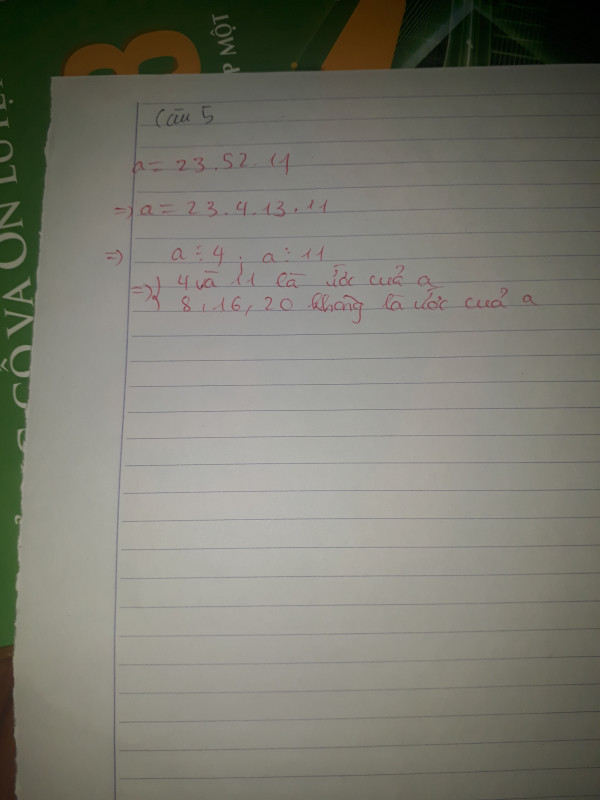 P MỘT
CÔ VÀ ÔN LUYỆ
Câu 5
a = 23.52.11
=> a = 23.4.13.11
=> a ⋮ 4 ; a ⋮ 11
=> } 4 và 11 là ước cuả a
8, 16, 20 không là ước cuả a